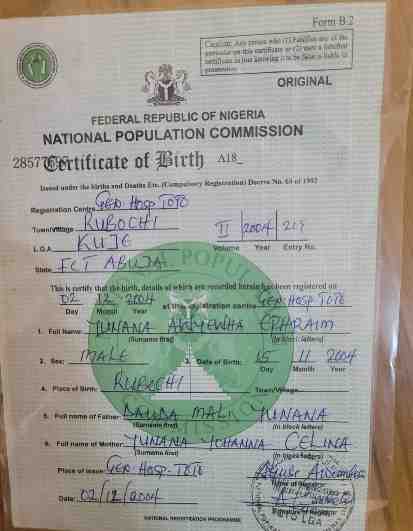 Form B.2
Caution: Any person who (1) Falsifies any of the
particular on this certificate or (2) uses a falsified
certificate as true knowing it to be false is liable to
prosecution
ORIGINAL
FEDERAL REPUBLIC OF NIGERIA
NATIONAL POPULATION COMMISSION
Certificate of Birth A18_
Issued under the births and Deaths Etc. (Compulsory Registration) Decree No. 69 of 1992
Registration Centre GEN. HOSP TOTO
Town/Village RUBOCHI II 2004
L.G.A KUJE Volume Year Entry No.
State FCT ABUJA
This is certify that the birth, details of which are recorded herein has been registered on
02 12 2004 at the registration centre GEN. HOSP TOTO
Day Month Year
1. Full Name: YUNANA EPHRAIM
(Surname first) (In block letters)
2. Sex: MALE 3. Date of Birth: 15 11 2004
Day Month Year
4. Place of Birth: RUBOCHI Town/Village
5. Full name of Father: DAUDA YUNANA
(Surname first) (In block letters)
6. Full name of Mother: YUNANA YOHANNA CELINA
(Surname first) (In block letters)
Place of issue: GEN. HOSP. TOTO
Name of Registrar
Date: 02/12/2004
Signature of Registrar
NATIONAL REGISTRATION PROGRAMME